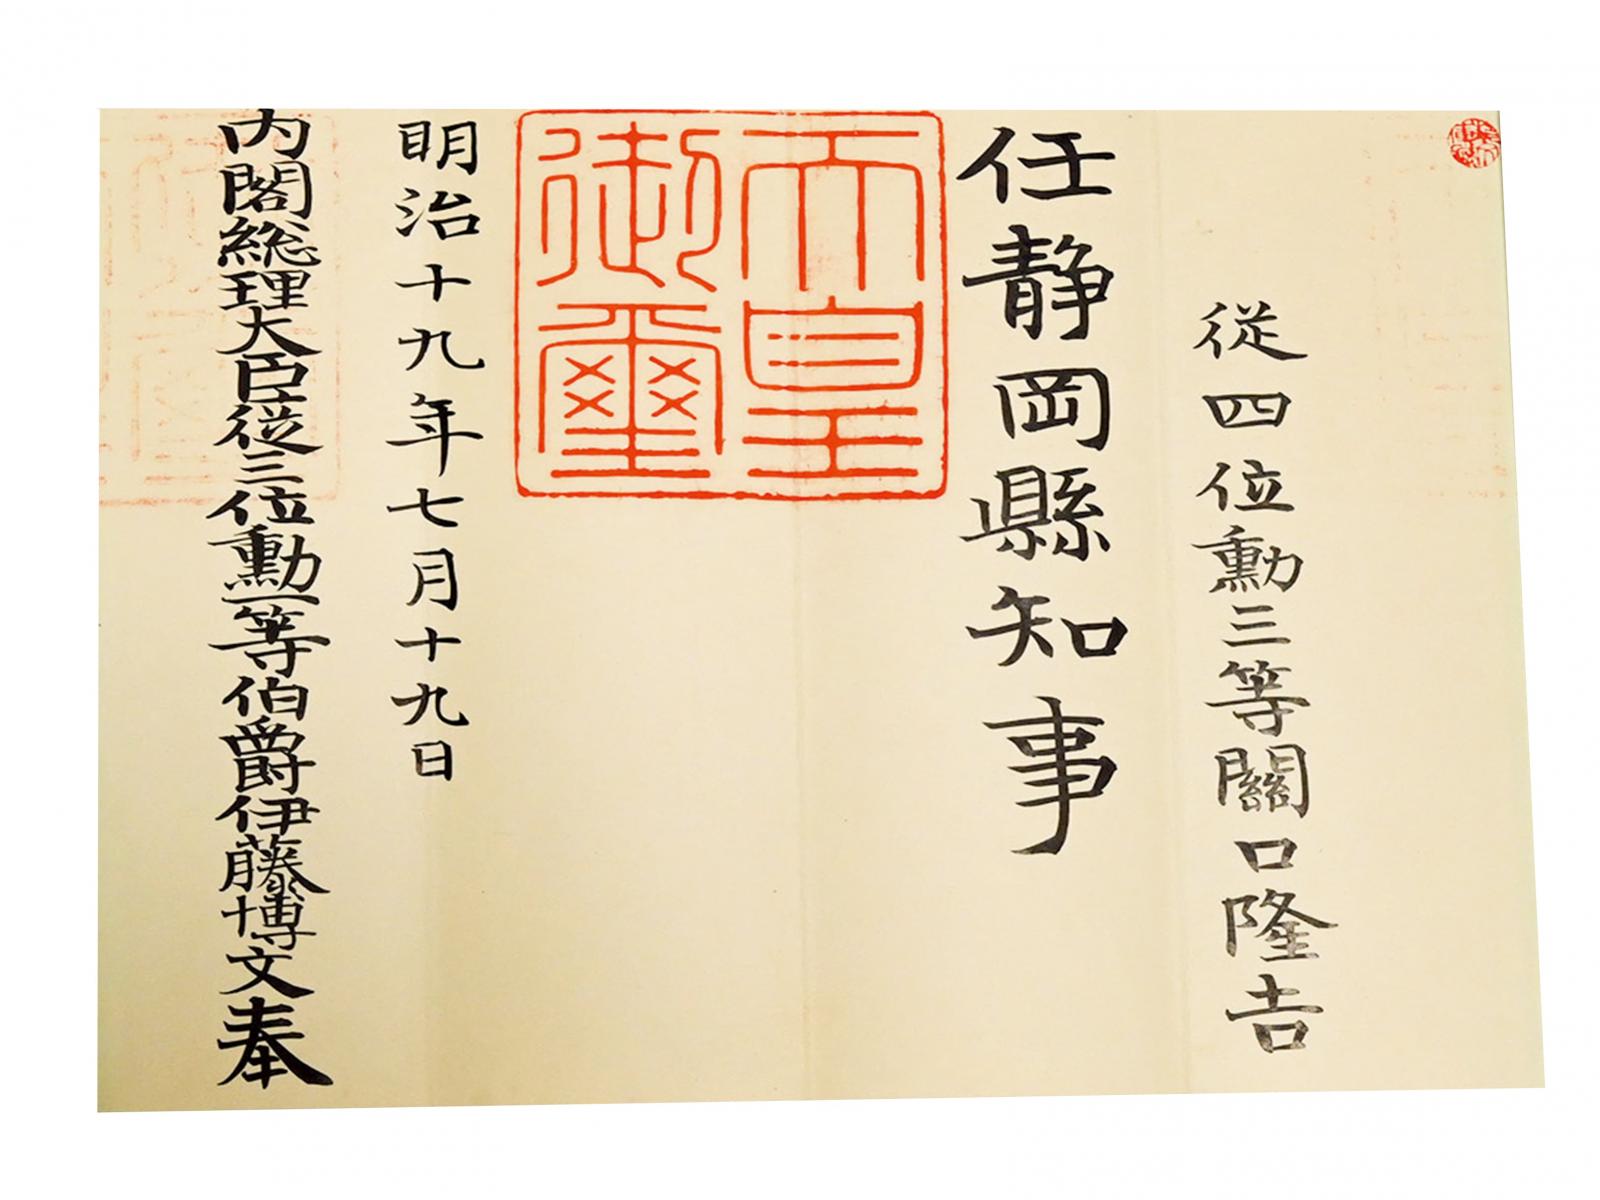 從四位勳三等關口隆吉
任静岡縣知事
天皇御璽
明治十九年七月十九日
内閣総理大臣従三位勲一等伯爵伊藤博文奉